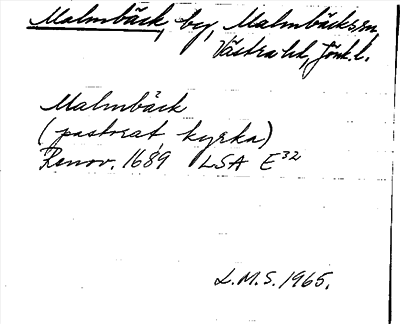 Malmbäck, by, Malmbäcks sn,
Västra hd, Jönk. l.
Malmbäck
(pastorat, kyrka)
Renov. 1689 LSA E32
L.M.S. 1965.